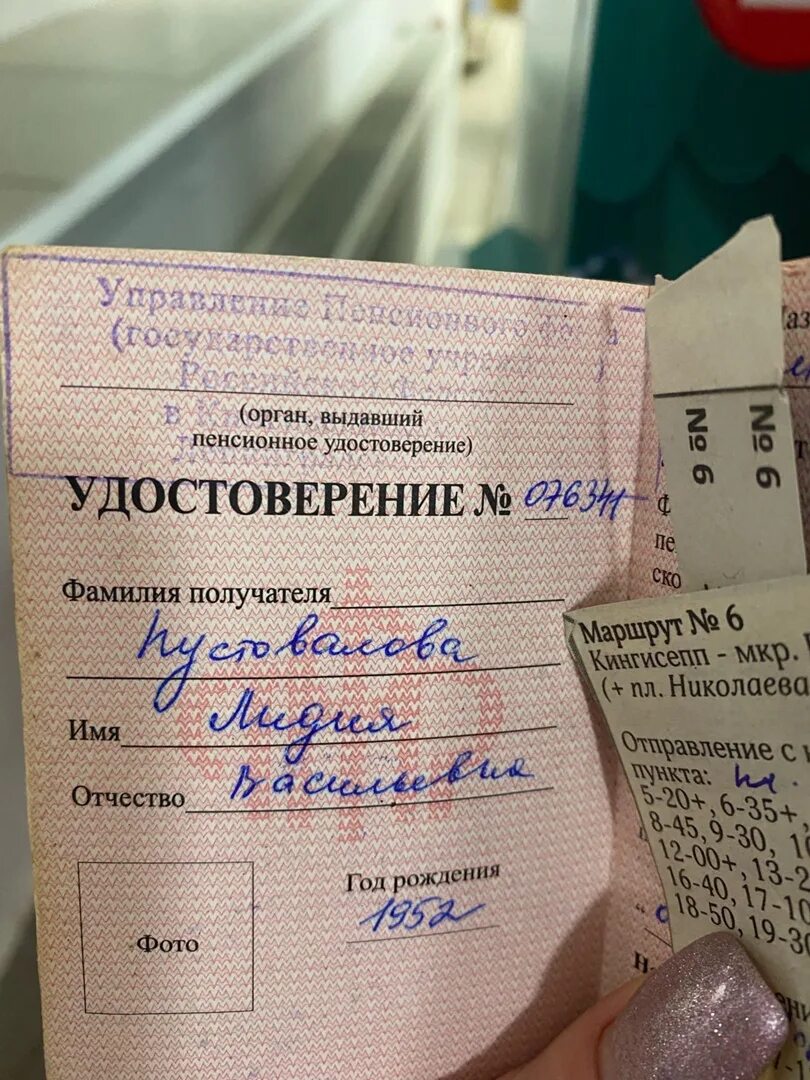 Управление Пенсионного
(государственное
(орган, выдавший
пенсионное удостоверение)
УДОСТОВЕРЕНИЕ № 076341
Фамилия получателя
Пустовалова
Имя Лидия
Отчество Васильевна
Фото
Год рождения
1952
№ 6
№ 6
Маршрут № 6
Кингисепп - мкр.
(+ пл. Николаева
Отправление с
пункта:
5-20+, 6-35+,
8-45, 9-30,
12-00+, 13-2
16-40, 17-10
18-50, 19-30